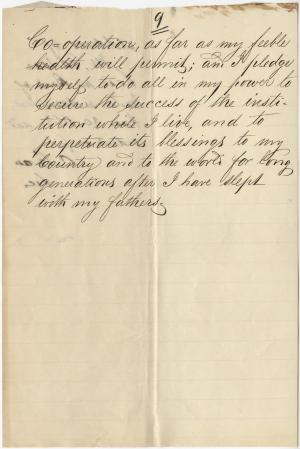 9
Co-operation, as far as my feeble
health will permit; and I pledge
myself to do all in my power to
secure the success of the insti-
tution while I live, and to
perpetuate its blessings to my
country and to the world for long
generations after I have slept
with my fathers.